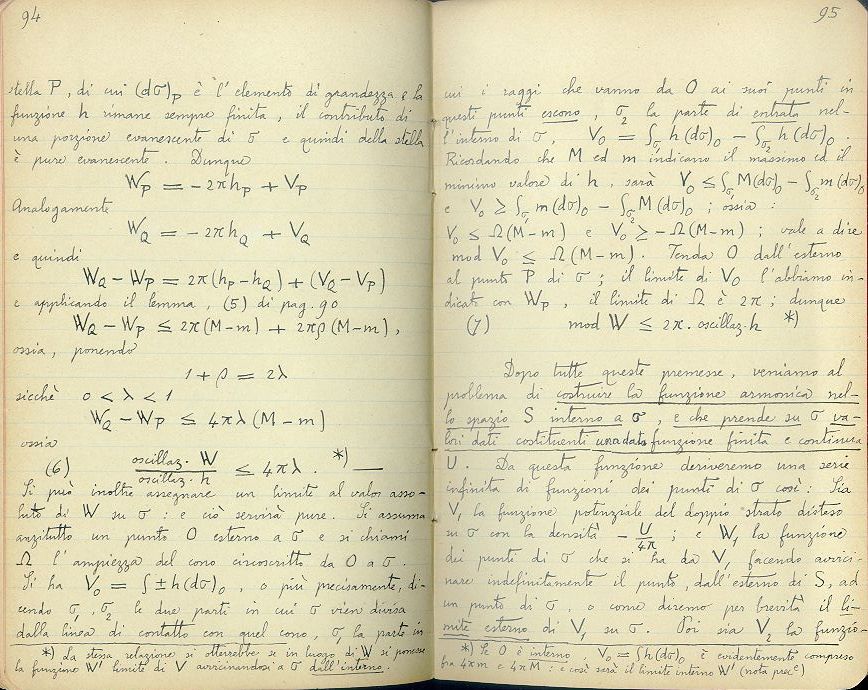 94
stella P, di cui (dσ)_P è l'elemento di grandezza e la
funzione h rimane sempre finita, il contributo di
una porzione evanescente di σ e quindi della stella
è pure evanescente. Dunque
W_P = -2πh_P + V_P
Analogamente
W_Q = -2πh_Q + V_Q
e quindi
W_Q - W_P = 2π(h_P - h_Q) + (V_Q - V_P)
e applicando il lemma, (5) di pag. 90
W_Q - W_P ≤ 2π(M-m) + 2πρ(M-m),
ossia, ponendo
1 + ρ = 2λ
sicchè 0 < λ < 1
W_Q - W_P ≤ 4πλ(M-m)
ossia
(6) oscillaz. W / oscillaz. h ≤ 4πλ. *) —
Si può inoltre assegnare un limite al valor asso-
luto di W su σ: e ciò servirà pure. Si assuma
anzitutto un punto O esterno a σ e si chiami
Ω l'ampiezza del cono circoscritto da O a σ.
Si ha V_O = ∫±h(dσ)_O, o più precisamente, di-
cendo σ₁, σ₂ le due parti in cui σ vien divisa
dalla linea di contatto con quel cono, σ₁ la parte in
*) La stessa relazione si otterrebbe se in luogo di W si ponesse
la funzione W' limite di V avvicinandosi a σ dall'interno.
95
cui i raggi che vanno da O ai suoi punti in
questi punti escono, σ₂ la parte di entrata nel-
l'interno di σ, V_O = ∫_σ₁ h(dσ)_O - ∫_σ₂ h(dσ)_O.
Ricordando che M ed m indicano il massimo ed il
minimo valore di h, sarà V_O ≤ ∫_σ₁ M(dσ)_O - ∫_σ₂ m(dσ)_O
e V_O ≥ ∫_σ₁ m(dσ)_O - ∫_σ₂ M(dσ)_O; ossia:
V_O ≤ Ω(M-m) e V_O ≥ -Ω(M-m); vale a dire
mod V_O ≤ Ω(M-m). Tenda O dall'esterno
al punto P di σ; il limite di V_O l'abbiamo in-
dicato con W_P, il limite di Ω è 2π; dunque
(7) mod W ≤ 2π. oscillaz. h *)
Dopo tutte queste premesse, veniamo al
problema di costruire la funzione armonica nel-
lo spazio S interno a σ, e che prende su σ va-
lori dati costituenti una data funzione finita e continua
U. Da questa funzione deriveremo una serie
infinita di funzioni dei punti di σ così: Sia
V₁ la funzione potenziale del doppio strato disteso
su σ con la densità - U/4π; e W₁ la funzione
dei punti di σ che si ha da V₁ facendo avvici-
nare indefinitamente il punto, dall'esterno di S, ad
un punto di σ, o come diremo per brevità il li-
mite esterno di V₁ su σ. Poi sia V₂ la funzio-
*) Se O è interno, V_O = ∫h(dσ)_O è evidentemente compreso
fra 4πm e 4πM: e così sarà il limite interno W' (nota prec.e)